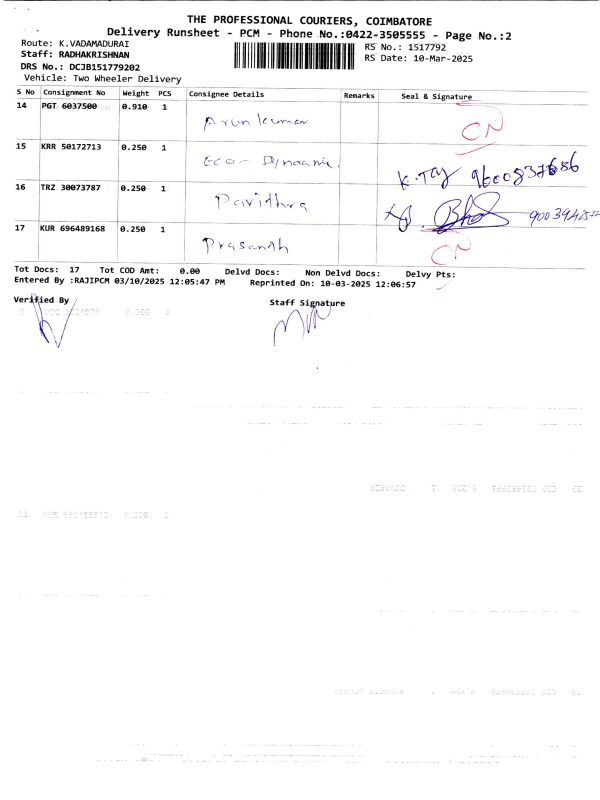 THE PROFESSIONAL COURIERS, COIMBATORE
Delivery Runsheet - PCM - Phone No.:0422-3505555 - Page No.:2
Route: K.VADAMADURAI
RS No.: 1517792
Staff: RADHAKRISHNAN
RS Date: 10-Mar-2025
DRS No.: DCJB151779202
Vehicle: Two Wheeler Delivery
S No Consignment No Weight PCS Consignee Details Remarks Seal & Signature
14 PGT 6037500 0.910 1 Arun kumar CN
15 KRR 50172713 0.250 1 Eco- Dynamic K.
16 TRZ 30073787 0.250 1 Pavithra
17 KUR 696489168 0.250 1 Prasanth CN
Tot Docs: 17 Tot COD Amt: 0.00 Delvd Docs: Non Delvd Docs: Delvy Pts:
Entered By :RAJIPCM 03/10/2025 12:05:47 PM Reprinted On: 10-03-2025 12:06:57
Verified By
Staff Signature